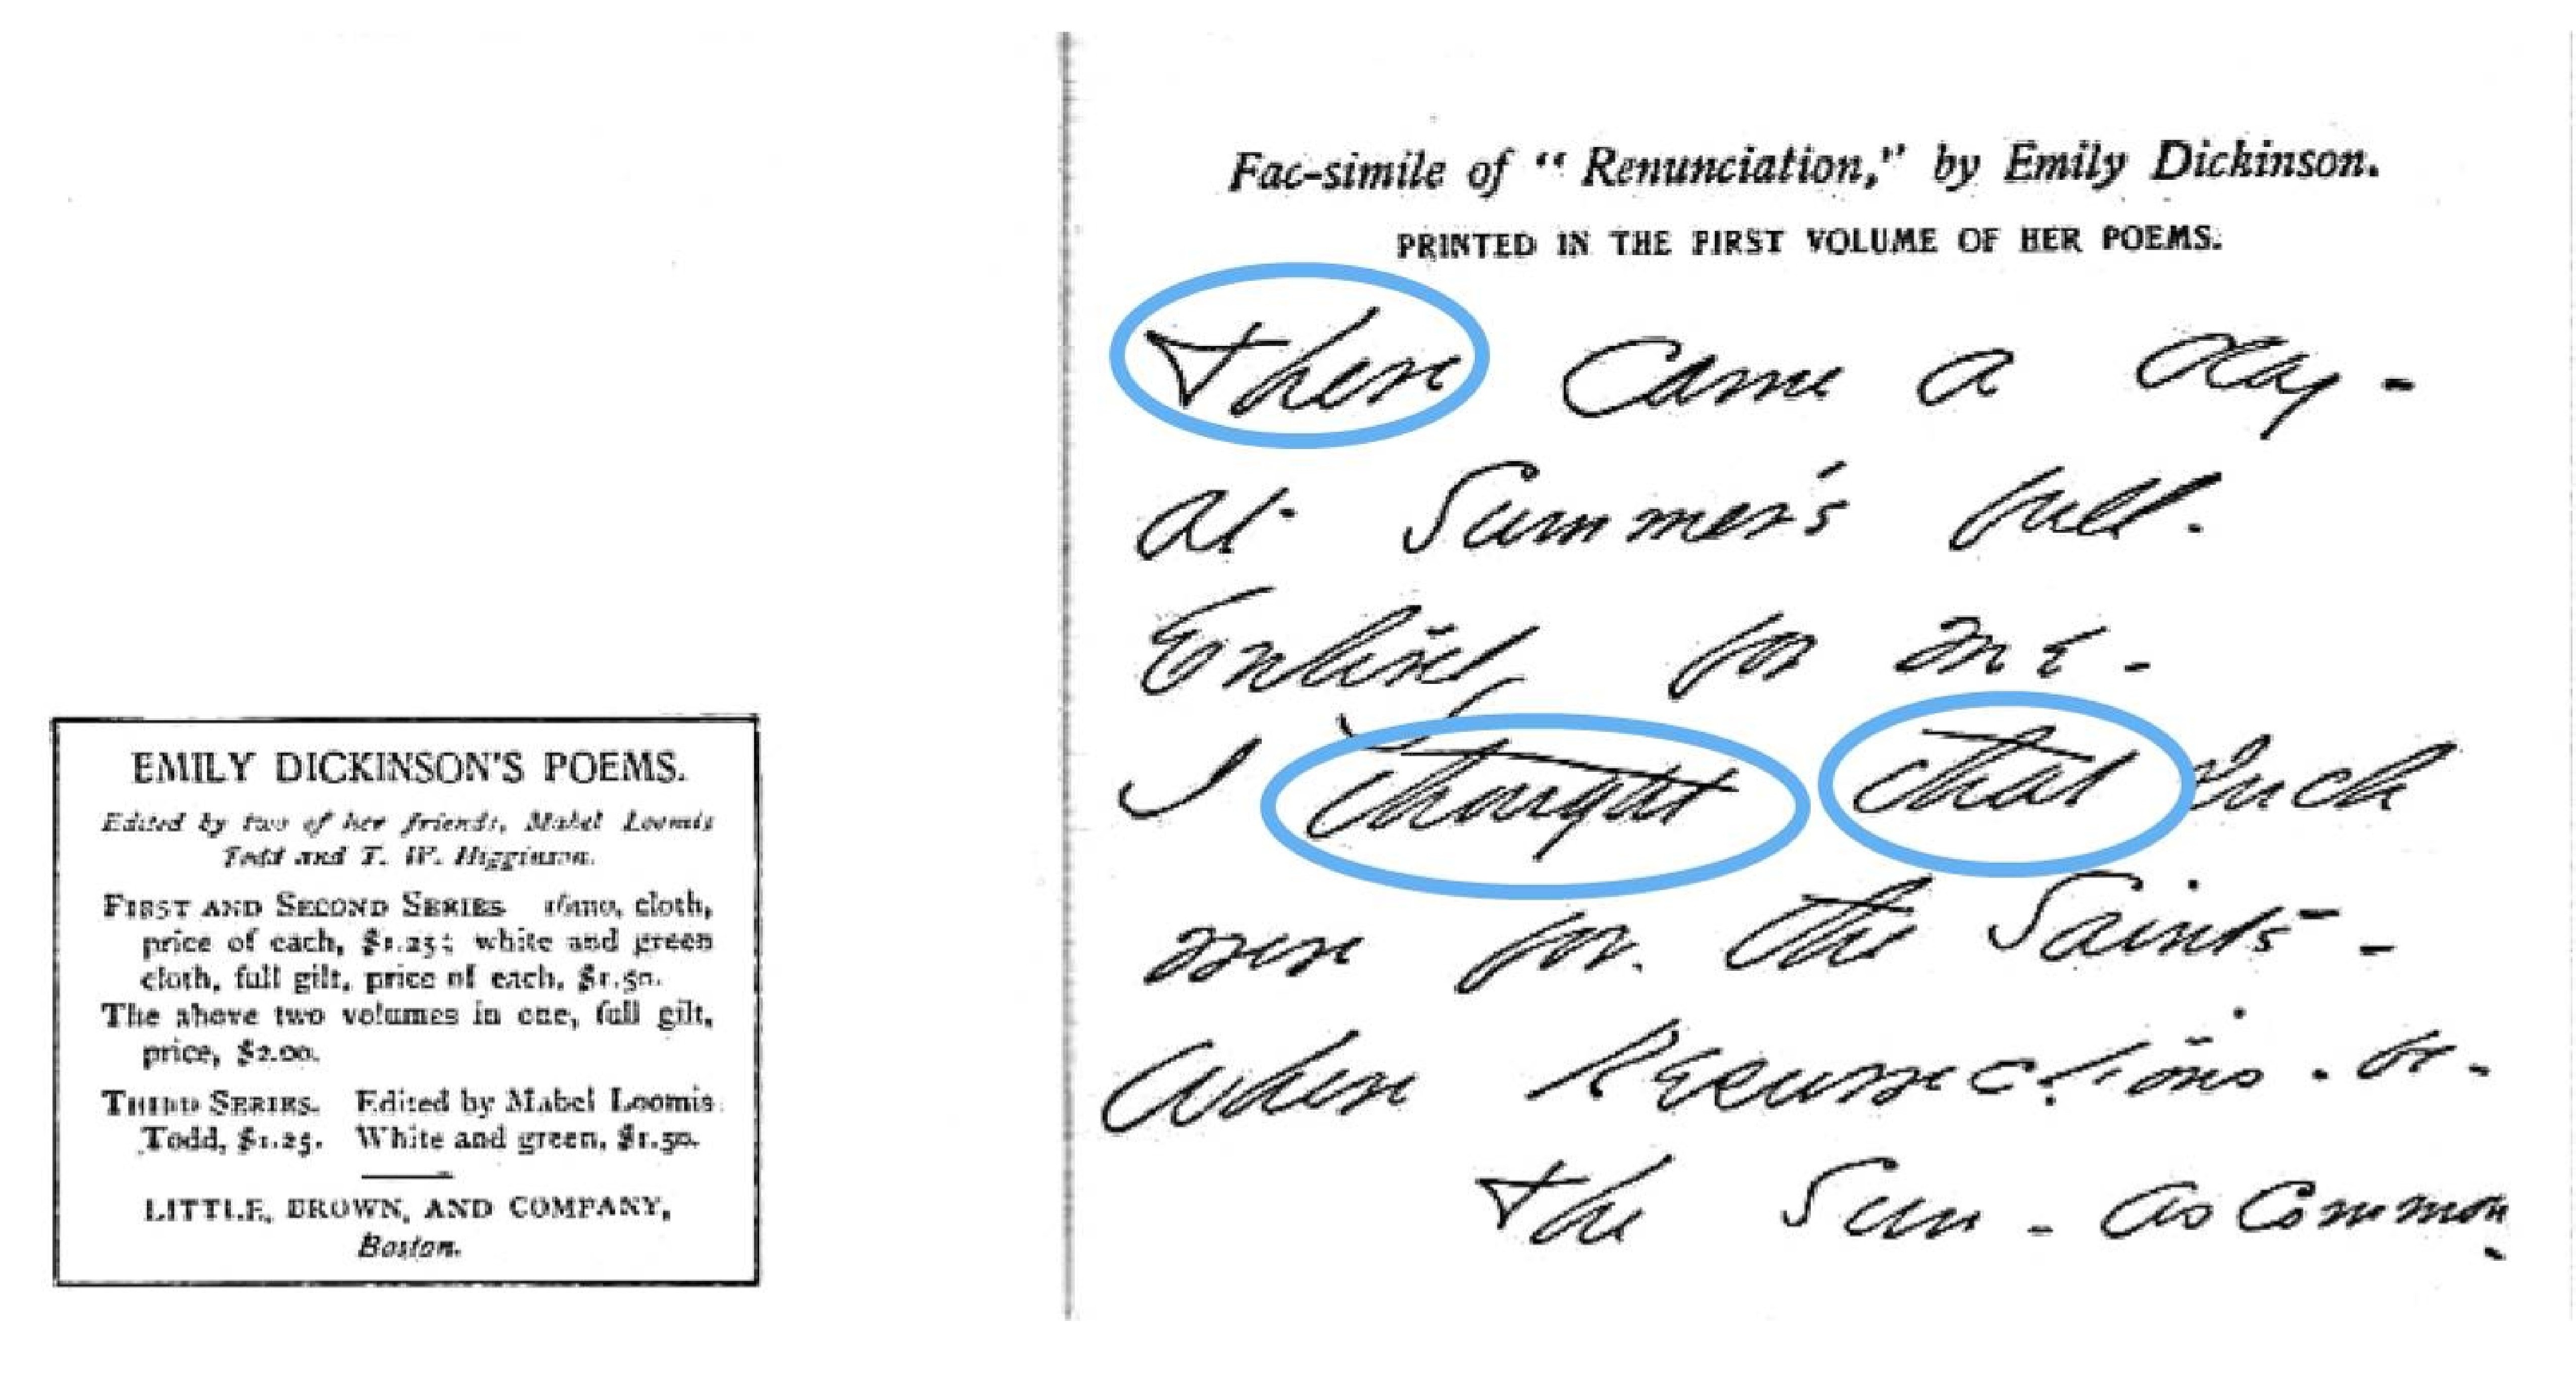 EMILY DICKINSON'S POEMS.
Edited by two of her friends, Mabel Loomis
Todd and T. W. Higginson.
FIRST AND SECOND SERIES 16mo, cloth,
price of each, $1.25; white and green
cloth, full gilt, price of each, $1.50.
The above two volumes in one, full gilt,
price, $2.00.
THIRD SERIES. Edited by Mabel Loomis
Todd, $1.25. White and green, $1.50.
LITTLE, BROWN, AND COMPANY,
Boston.
Fac-simile of "Renunciation," by Emily Dickinson.
PRINTED IN THE FIRST VOLUME OF HER POEMS.
There came a day -
at Summer's full.
Entirely for me -
I thought that such
were for the Saints -
When Resurrections - be -
The Sun - as common